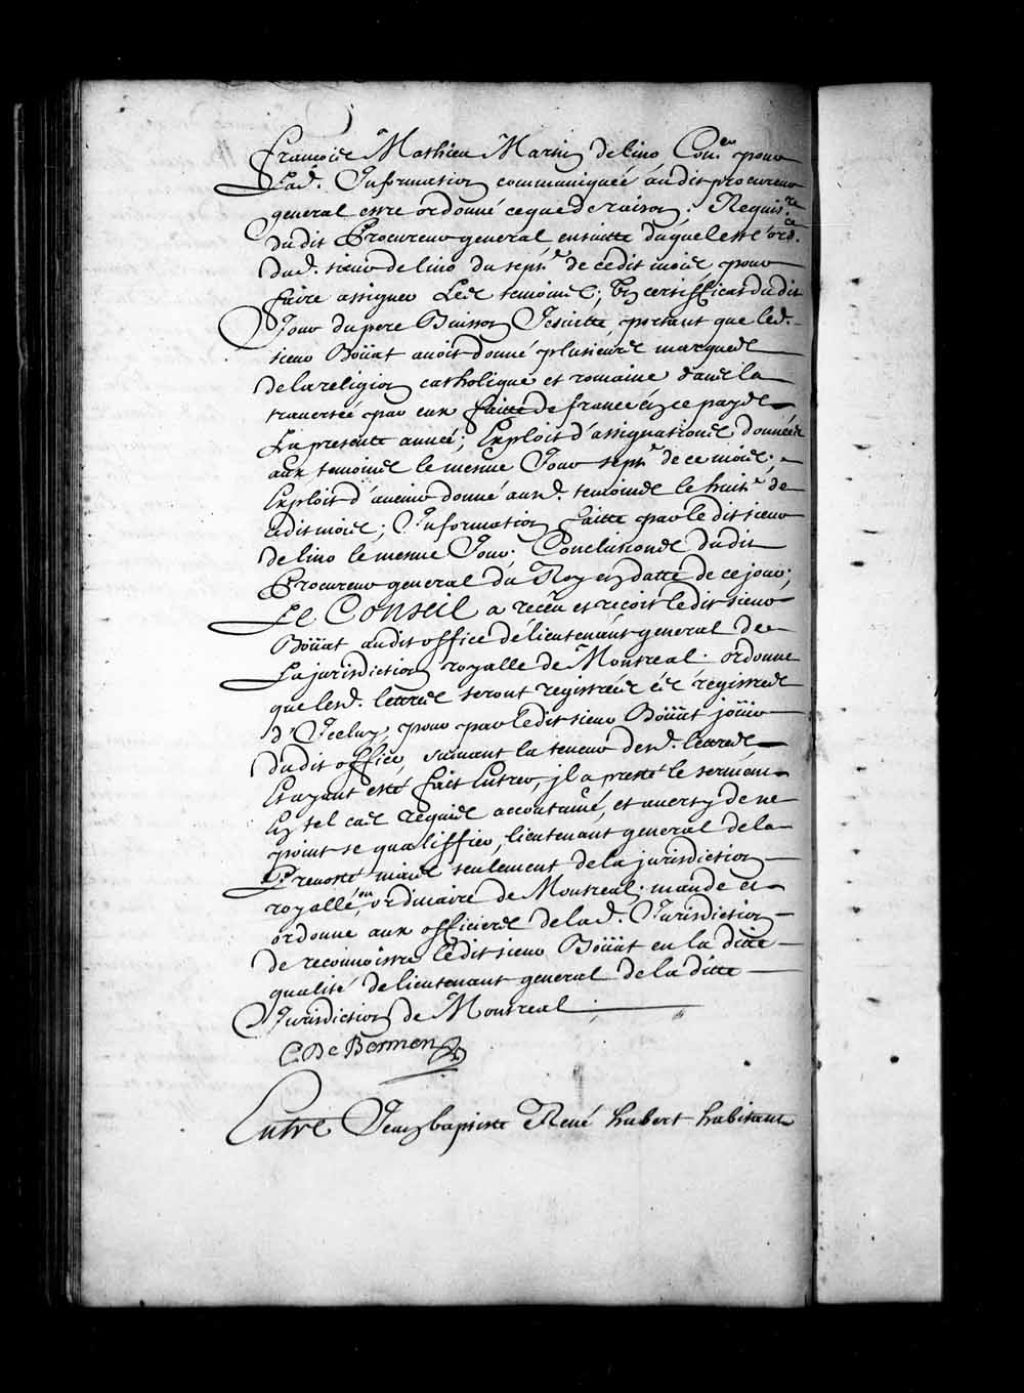 francois Mathieu Martin delino Con.er pour
Lad. Information communiquée audit procureur
general estre ordonné ceque de raison; Requis.re
dudit Procureur general ensuitte duquel est l'ord.ce
dud. sieur delino du sept.e de cedit mois pour
faire assigner Les temoins; Un certifficat dudit
Jour du pere Buisson Jesuitte, portant que led.
sieur Boüat avoit donné plusieurs marques
de la religion catholique et romaine dans la
traversée par eux faitte de france en ce pays
La presente année; Exploit d'assignations données
aux temoins le mesme Jour sept.e de ce mois;
Exploit d'avenir donné ausd. temoins le huit.e de
cedit mois; Information faitte par le dit sieur
delino le mesme Jour; Conclusions dudit
Procureur general du Roy en datte de ce jour;
Le Conseil a receu et reçoit ledit sieur
Boüat audit office de lieutenant general de
La jurisdiction royalle de Montreal. ordonne
que lesd. lettres seront registrées és registres
d'Iceluy, pour par ledit sieur Boüat joüir
dudit office, suivant la teneur desd. lettres
Et ayant esté fait Entrer, jl a presté le serment
En tel cas requis accoutumé, et averty de ne
point se qualiffier, lieutenant general de la
Prevosté mais seulement de la jurisdiction
royallé, ordinaire de Montreal. mande et
ordonne aux officiers de lad. Jurisdiction
de reconnoistre ledit sieur Boüat en la ditte
qualité de lieutenant general de la ditte
Jurisdiction de Montreal.
C. De Bermen
Entre Jean baptiste René hubert habitant